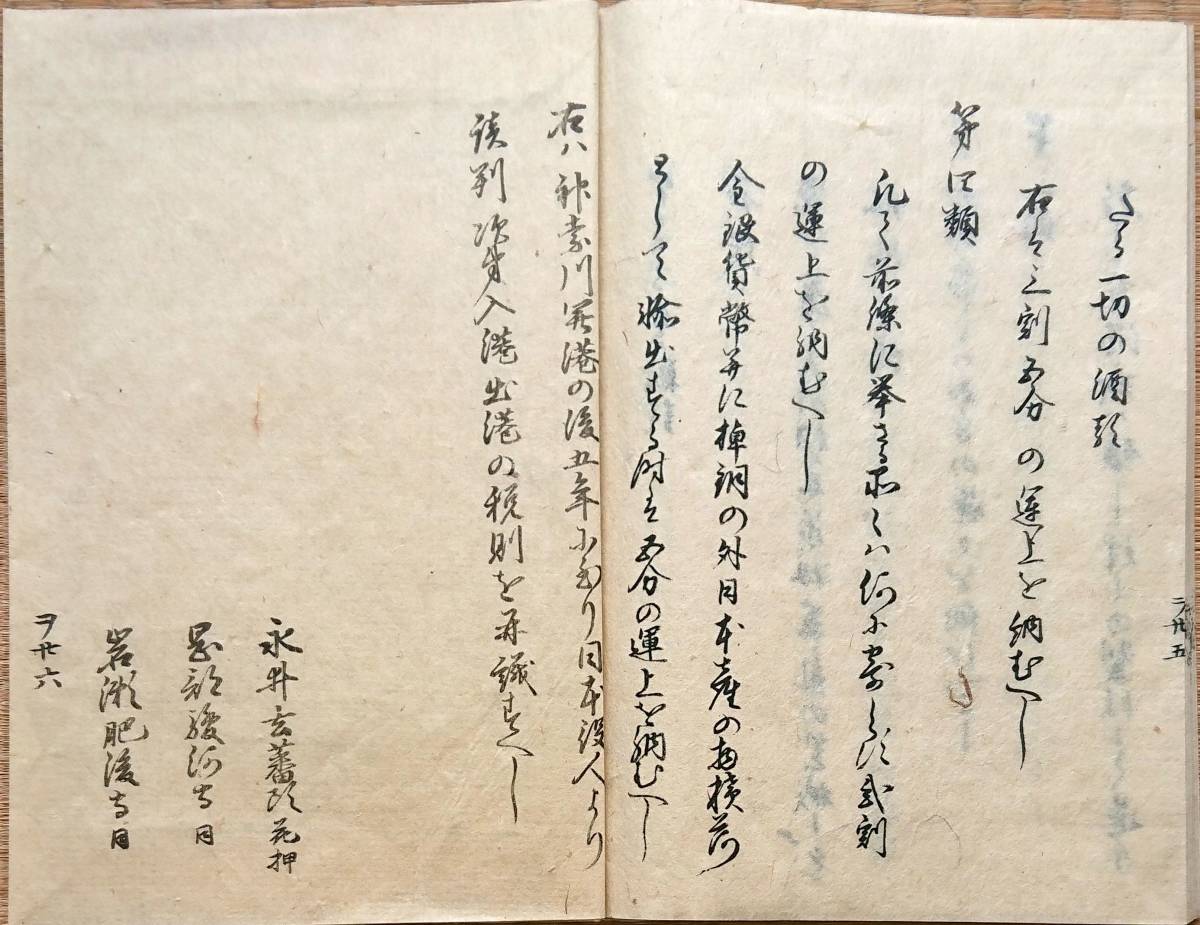 ヲ廿五
たる一切の酒類
右は三割五分の運上を納むへし
第四類
凡て前條に挙さる品々ハ何に寄らす弐割
の運上を納むへし
金銀貨幣并に棹銅の外日本産の物積荷
として輸出する時は五分の運上を納むへし
右ハ神奈川開港の後五年に至り日本役人より
談判次第入港出港の税則を再議すへし
永井玄蕃頭 花押
岡部駿河守 同
岩瀬肥後守 同
ヲ廿六